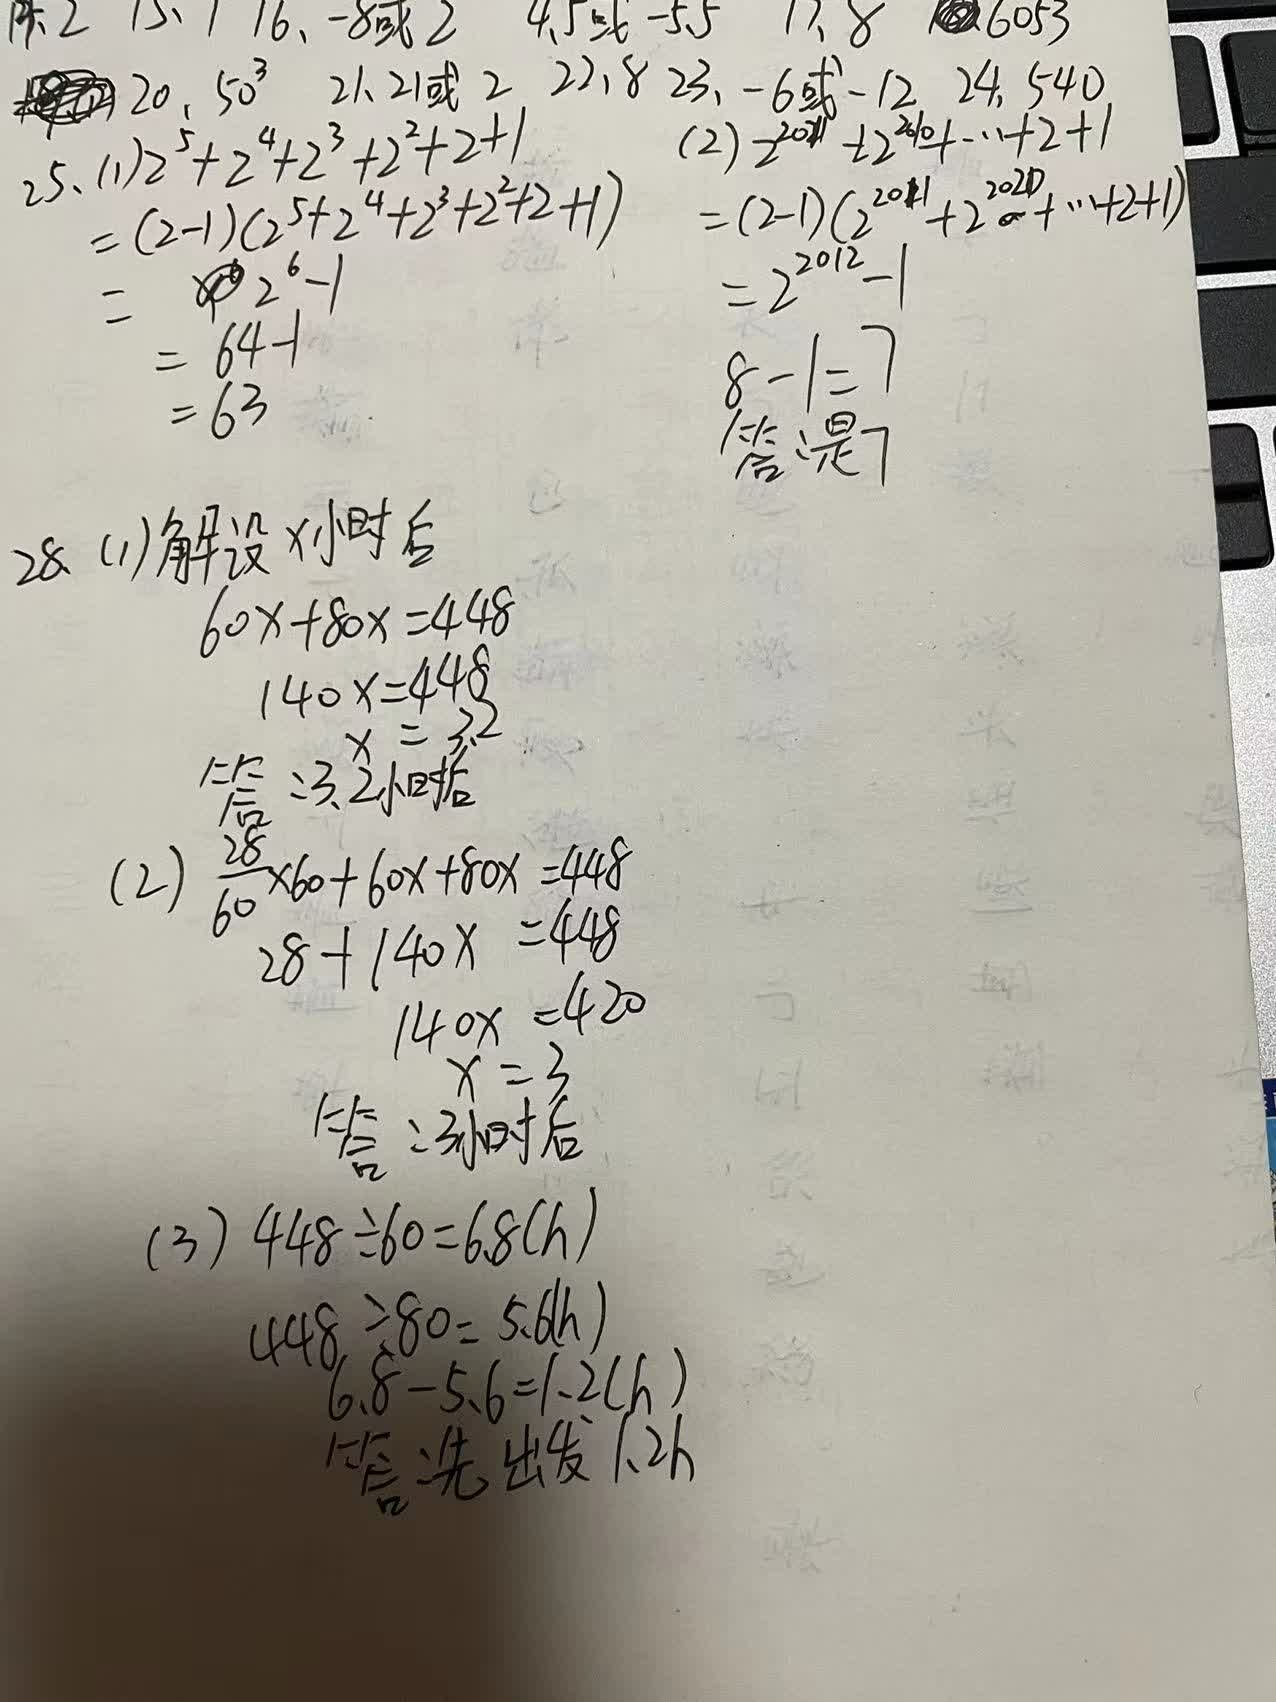 14.2 15、1 16、-8或2 4.5或-5.5 17、8 6053
20、50³ 21、21或2 22、8 23、-6或-12 24、540
25、(1) 2⁵+2⁴+2³+2²+2+1
=(2-1)(2⁵+2⁴+2³+2²+2+1)
= 2⁶-1
= 64-1
= 63
(2) 2²⁰¹¹+2²⁰¹⁰+…+2+1
=(2-1)(2²⁰¹¹+2²⁰¹⁰+…+2+1)
=2²⁰¹²-1
8-1=7
答:是7
28、(1)解设x小时后
60x+80x=448
140x=448
x=3.2
答:3.2小时后
(2) 28/60×60+60x+80x=448
28+140x=448
140x=420
x=3
答:3小时后
(3) 448÷60=6.8(h)
448÷80=5.6(h)
6.8-5.6=1.2(h)
答:先出发1.2h